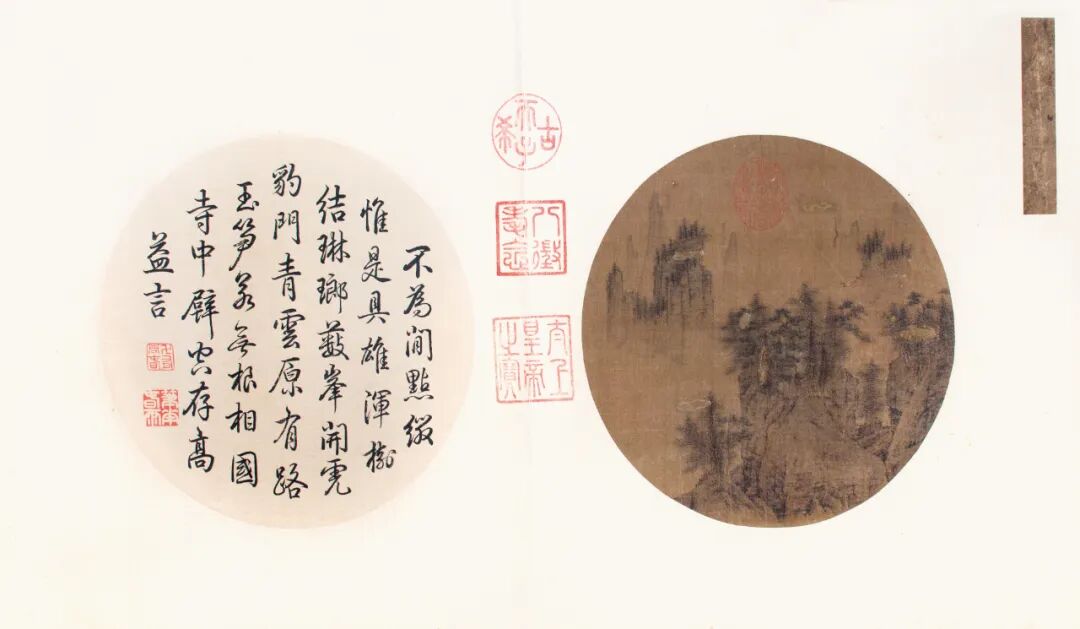 不為閒點綴
惟是具雄渾樹
結琳瑯薮峯開虎
豹門青雲原有路
玉笋若無根相國
寺中壁空存高
益言
古希天子
八徵耄念
太上皇帝之寶